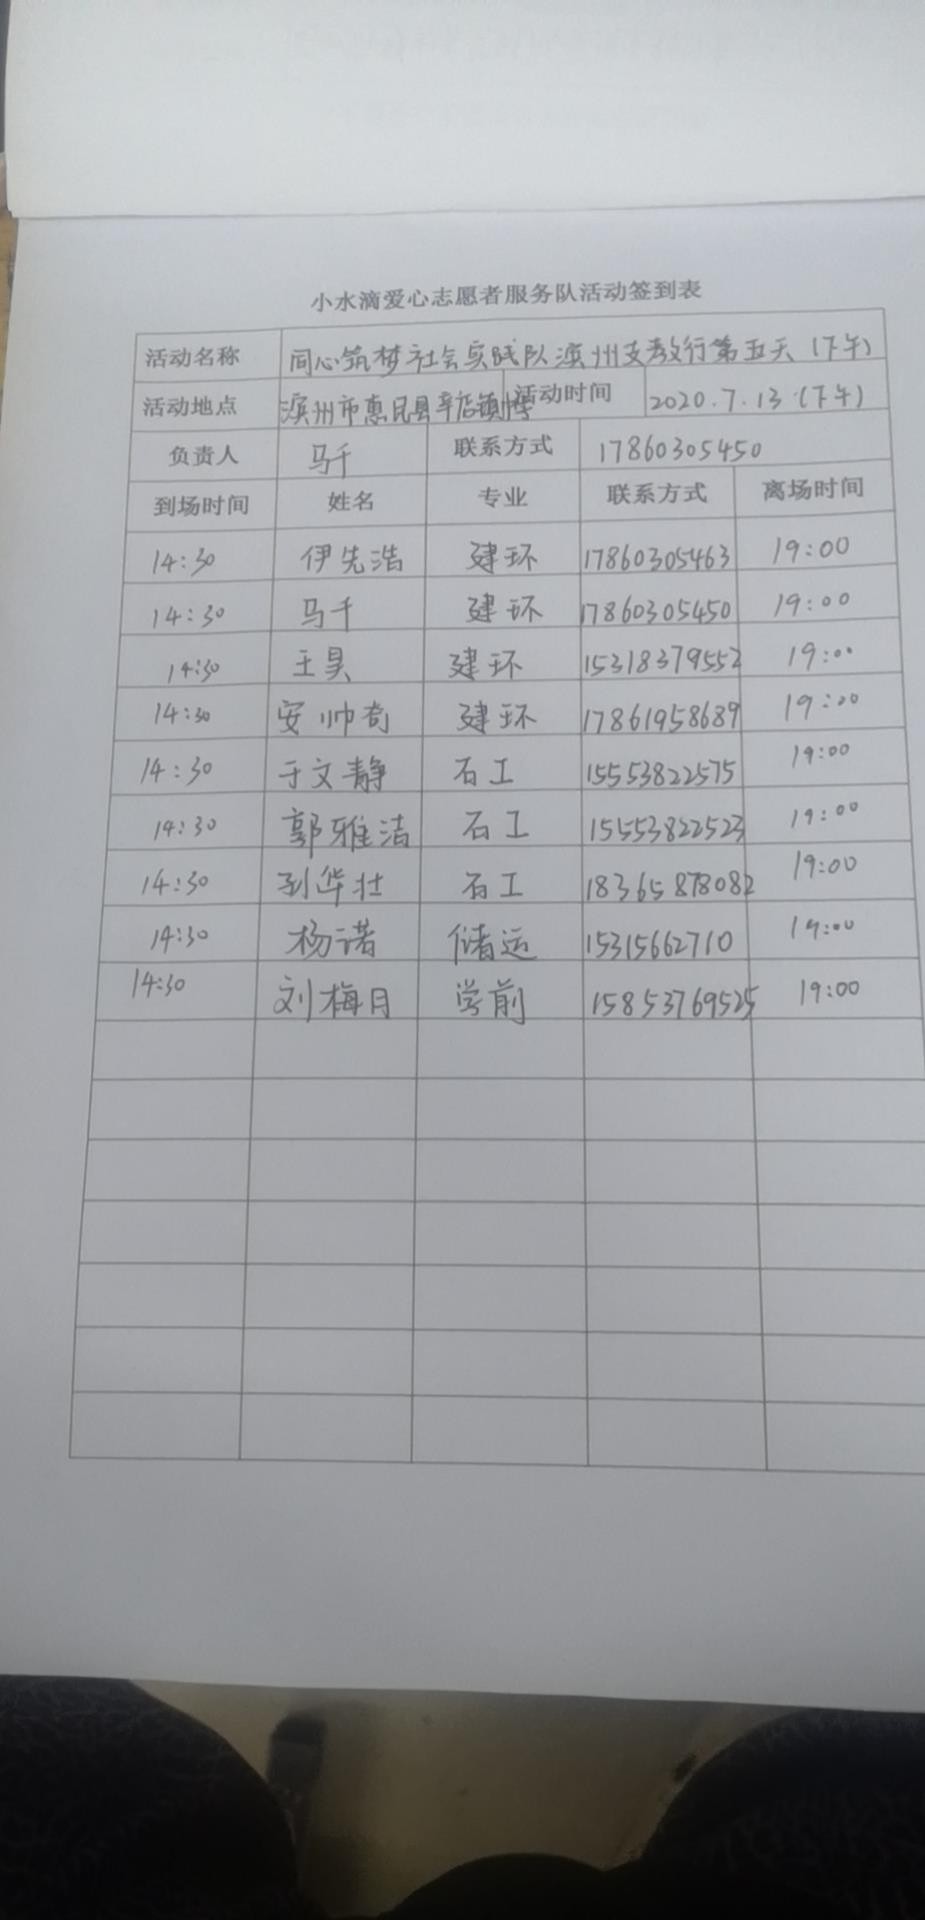 小水滴爱心志愿者服务队活动签到表
活动名称 同心筑梦社会实践队滨州支教行第五天（下午）
活动地点 滨州市惠民县辛店镇 活动时间 2020.7.13（下午）
负责人 马千 联系方式 17860305450
到场时间 姓名 专业 联系方式 离场时间
14:30 伊先浩 建环 17860305463 19:00
14:30 马千 建环 17860305450 19:00
14:30 王昊 建环 15318379552 19:00
14:30 安帅奇 建环 17861958689 19:00
14:30 于文静 石工 15553822575 19:00
14:30 郭雅洁 石工 15553822523 19:00
14:30 刘华壮 石工 18365878082 19:00
14:30 杨诺 储运 15315662710 19:00
14:30 刘梅月 学前 15853769525 19:00